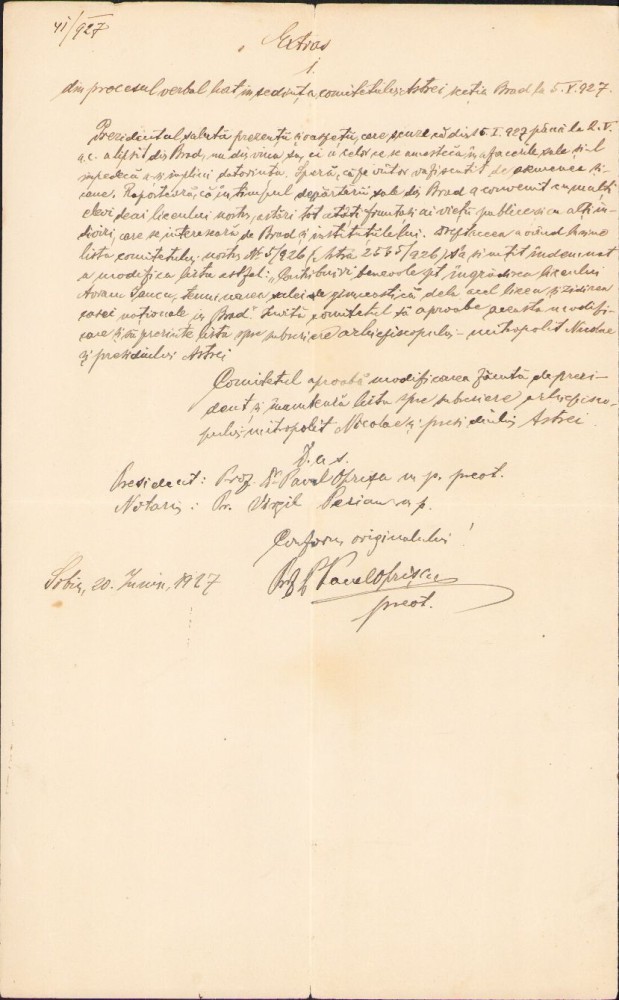 41/927
Extras
1.
din procesul verbal luat în ședința comitetului Astrei secția Brad la 5.V.927.
Prezidentul salută prezenții care scuze că din 15.I.927 până la 2.V.
a.c. a lipsit din Brad, nu din vina sa, ci a celor ce se amestecă în afacerile sale și-l
împedecă a-și împlini datorința. Speră, că pe viitor va fi scutit de asemenea
Raportează, că în timpul depărtării sale din Brad a convenit cu mulți
elevi de ai liceului nostru, astăzi tot atâți fruntași ai vieții publice și cu alți in-
divizi, care se interesează de Brad și institutiile lui.
lista comitetului nostru No 5/926 (Astra 2535/926) Să și a fost îndemnat
a modifica lista astfel: „Contribuiri benevole pt. îngrădirea liceului
Avram Iancu, terminarea salei de gimnastică dela acel liceu și zidirea
casei naționale în Brad" Invită comitetul să aproabe aceasta modifi-
care și să prezinte lista spre subscriere arhiepiscopului-mitropolit Nicolae
și prezidiului Astrei
Comitetul aproabă modificarea făcută de prezi-
dent și înaintează lista spre subscriere arhiepisco-
pului-mitropolit Nicolae și prezidiului Astrei.
D.u.s.
President: Prof. Dr Pavel Oprișa m.p. preot.
Notariu: Pr. Virgil Perian m.p.
Conform originalului!
Sibiu, 20. Iunie, 1927
Prof. Dr Pavel Oprișa
preot.